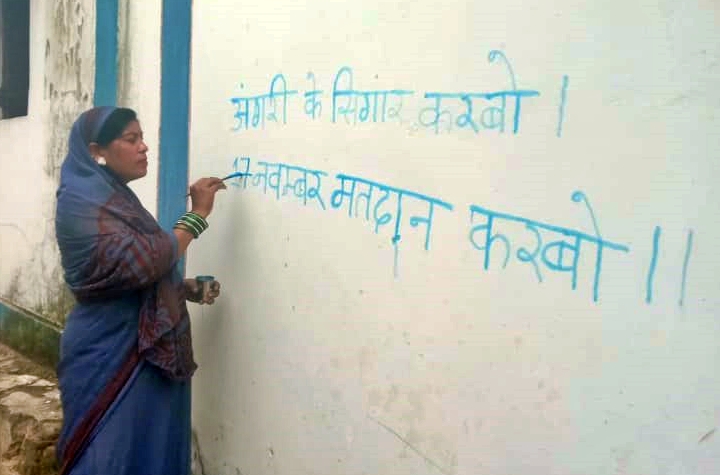 अंगरी के सिगांर करबो |
17 नवम्बर मतदान करबो ||